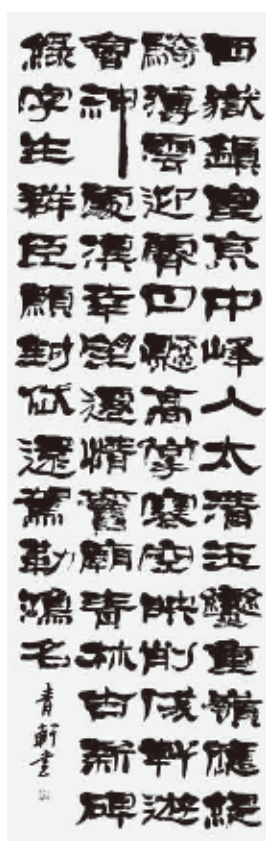 西嶽鎮皇京中峰入太清玉鑾重嶺應緹
騎薄雲迎霽日懸高掌寒空映削成軒遊
會神處漢幸望僊情舊廟青林古新碑
綠字生群臣願封岱還駕勒鴻名
青軒書